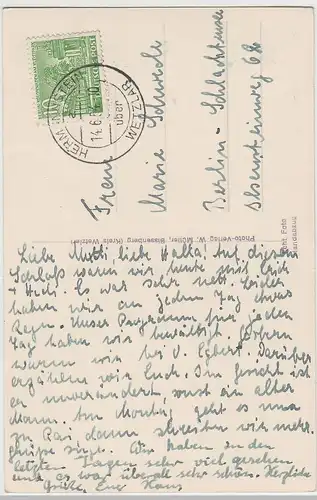 10
POST
HERMANNSTEIN
14.6.5
über
WETZLAR
Frau
Marie Schwede
Berlin - Schlachtensee
Ahrenshooperweg 62
Photo-Verlag W. Müller, Bissenberg (Kreis Wetzlar)
Foto
Liebe Mutti, liebe Halka! Auf diesem
Schloß waren wir heute mit Erich
+ Hedi. Es war sehr nett. Leider
haben wir an jedem Tag etwas
Regen. Unser Programm für jeden
Tag haben wir bewältigt. Gestern
waren wir bei v. Egbert. Darüber
erzählen wir Euch. Im Gesicht ist
er unverändert, sonst ein alter
Mann. Am Montag geht es nun
zu Pai, dann schreiben wir mehr.
Wir haben in den
letzten Tagen sehr viel gesehen
und es war überall sehr schön. Herzliche
Grüße, Euer Hans